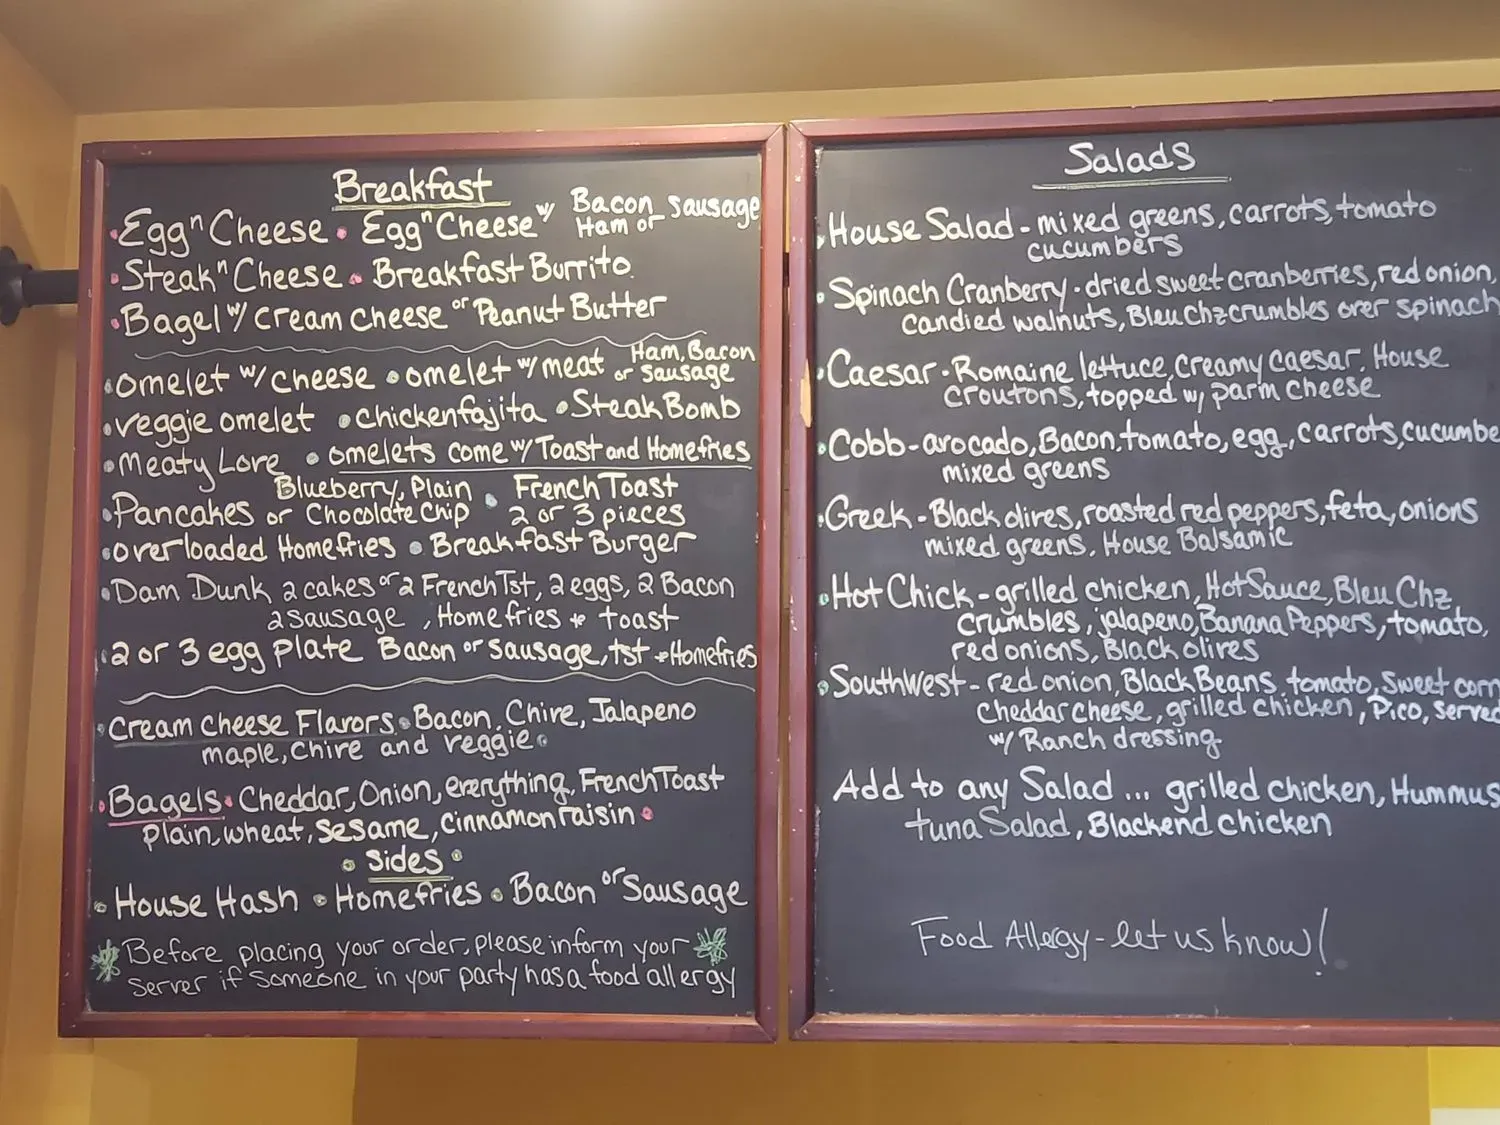 Breakfast
Egg n Cheese • Egg n Cheese w/ Bacon, Sausage
Ham or
Steak n Cheese • Breakfast Burrito
Bagel w/ cream cheese or Peanut Butter
omelet w/ cheese • omelet w/ meat Ham, Bacon
or Sausage
veggie omelet • chicken fajita • Steak Bomb
Meaty Love • omelets come w/ Toast and Homefries
Blueberry, Plain French Toast
Pancakes or Chocolate Chip • 2 or 3 pieces
overloaded Homefries • Breakfast Burger
Dam Dunk 2 cakes or 2 French Tst, 2 eggs, 2 Bacon
2 sausage, Homefries + toast
2 or 3 egg plate Bacon or Sausage, tst + Homefries
Cream Cheese Flavors • Bacon, Chive, Jalapeno
maple, chive and veggie •
Bagels • Cheddar, Onion, everything, French Toast
plain, wheat, sesame, cinnamon raisin •
• Sides •
House Hash • Homefries • Bacon or Sausage
Before placing your order, please inform your
server if someone in your party has a food allergy
Salads
House Salad - mixed greens, carrots, tomato
cucumbers
Spinach Cranberry - dried sweet cranberries, red onion,
candied walnuts, Bleu chz crumbles over spinach
Caesar - Romaine lettuce, Creamy Caesar, House
croutons, topped w/ parm cheese
Cobb - avocado, Bacon, tomato, egg, carrots, cucumbe
mixed greens
Greek - Black olives, roasted red peppers, feta, onions
mixed greens, House Balsamic
Hot Chick - grilled chicken, Hot Sauce, Bleu Chz
crumbles, jalapeno, Banana Peppers, tomato,
red onions, Black olives
SouthWest - red onion, Black Beans, tomato, Sweet corn
Cheddar cheese, grilled chicken, Pico, served
w/ Ranch dressing
Add to any Salad ... grilled chicken, Hummus
tuna Salad, Blackend chicken
Food Allergy - let us know!